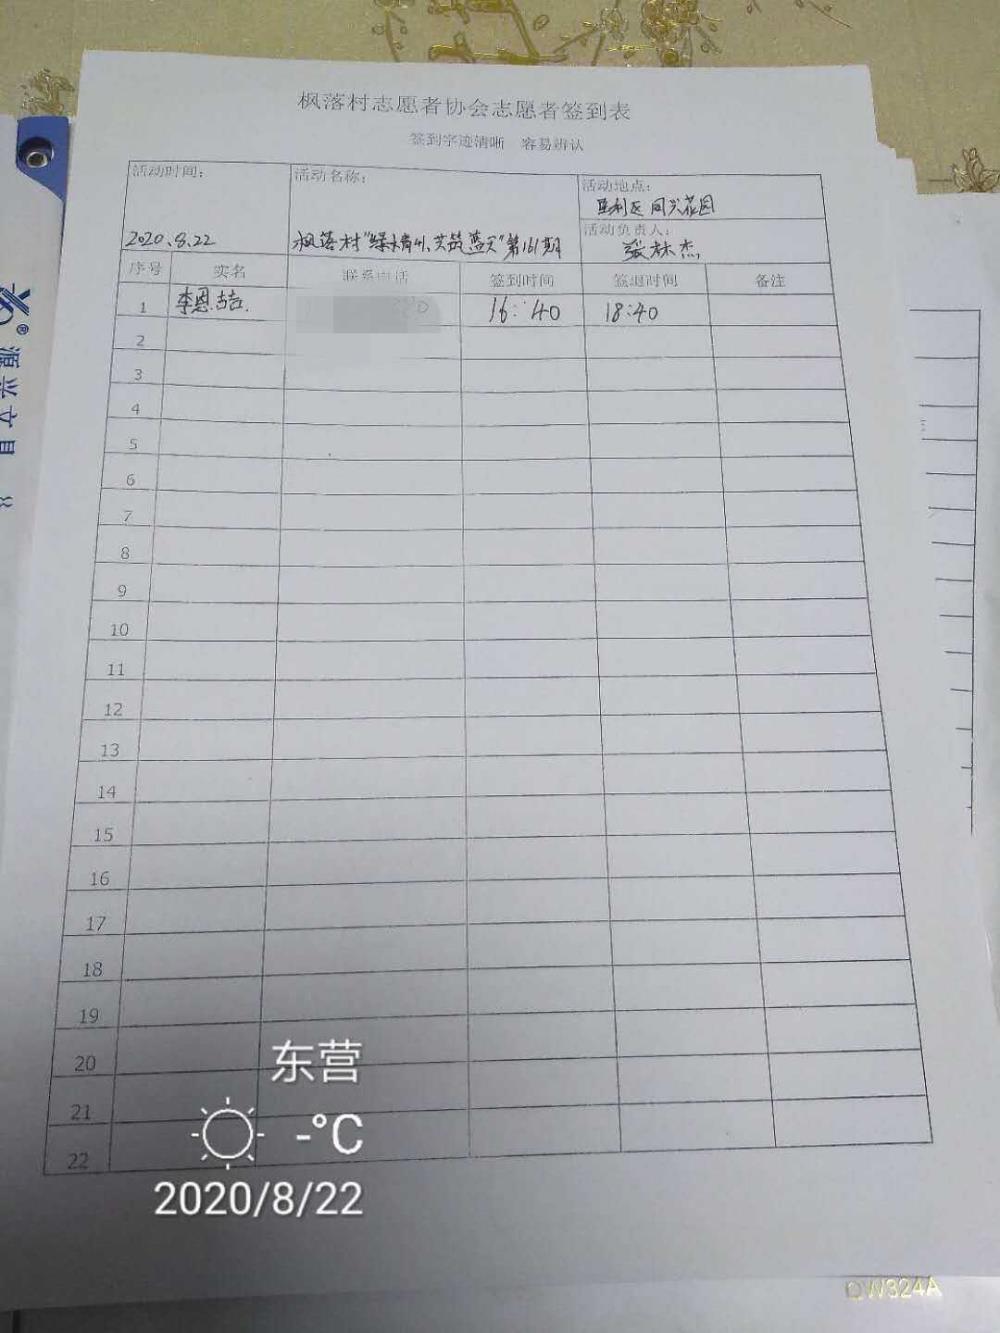 枫落村志愿者协会志愿者签到表
签到字迹清晰 容易辨认
活动时间：
2020.8.22
活动名称：
枫落村"绿水青州、共筑蓝天"第161期
活动地点：
垦利区同兴花园
活动负责人：
张林杰
序号 实名 联系电话 签到时间 签退时间 备注
1 李恩喆 16:40 18:40
2
3
4
5
6
7
8
9
10
11
12
13
14
15
16
17
18
19
20
21
22
东营
-°C
2020/8/22
源兴文具
QW324A